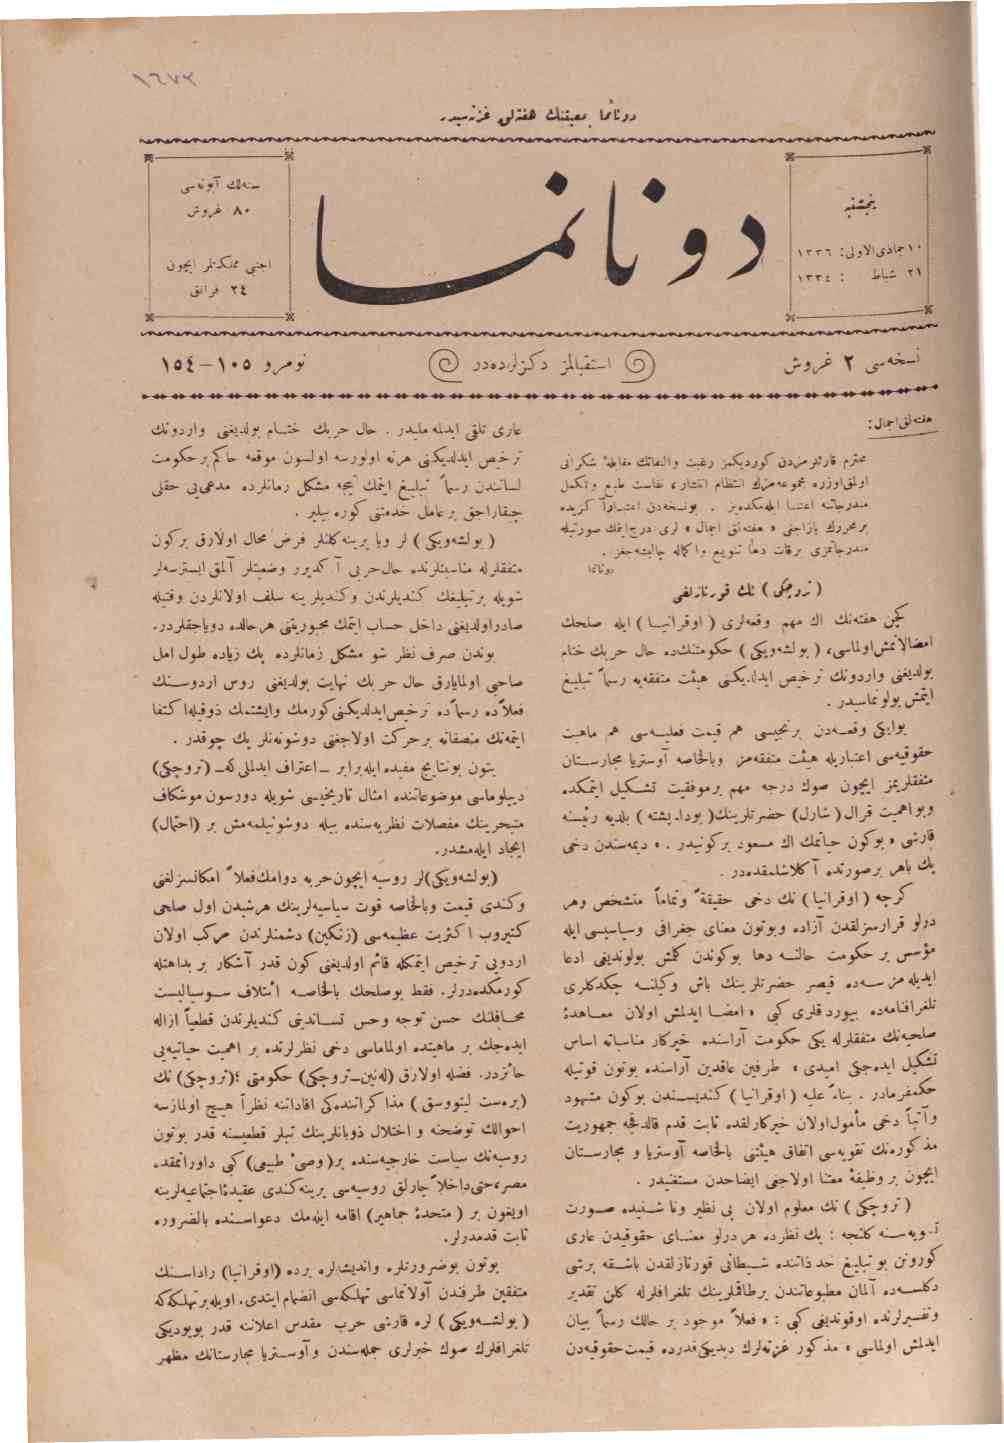 ١٦٧٢
دوناما جمعیتنك هفته‌لق غزته‌سیدر.
پنجشنبه
١٠ جماذی‌الاولی: ١٣٣٦
٢١ شباط : ١٣٣٤
دونانما
سنه‌لك آبونه‌سی
٨٠ غروش
اجنبی مملكتلر ایچون
٢٤ فرانق
نسخه‌سی ٢ غروش
استقبالمز دكزلرده‌در
نومرو ١٠٥–١٥٤
هفته‌لق اجمال:
محترم قارئلرمزدن كوردیكمز رغبت والتفاتك مقابلهٔ شكرانی
اولق‌اوزره مجموعه‌مزك انتظام انتشار، نفاست طبع وتكمل
مندرجاتنه اعتنا ایله‌مكده‌یز . بونسخه‌دن اعتباراً كزیده
بر محررك یازاجغی « هفته‌لق اجمال » لری درج ایتمك صورتیله
مندرجاتمزی برقات دها تنویع واكماله چالیشه‌جغز .
دونانما
( تروچكی ) نك قورنازلغی
كچن هفته‌نك اك مهم وقعه‌لری ( اوقرانیا ) ایله صلحك
امضالانمش‌اولماسی، ( بولشه‌ویكی ) حكومتنك‌ده حال حربك ختام
بولدیغنی واردونك ترخیص ایدلدیكنی هیئت متفقه‌یه رسماً تبلیغ
ایتمش بولونماسیدر .
بوایكی وقعه‌دن برنجیسی هم قیمت فعلیه‌سی هم ماهیت
حقوقیه‌سی اعتباریله هیئت متفقه‌مز وبالخاصه آوستریا مجارستان
متفقلریمز ایچون صوك درجه مهم برموفقیت تشكیل ایتمكده
وبواهمیت قرال (شارل) حضرتلرینك( بوداپشته ) بلدیه رئیسنه
قارشی « بوكون حیاتمك اك مسعود بركونیدر . » دیمه‌سندن دخی
پك باهر برصورتده آكلاشلمقده‌در .
كرچه ( اوقرانیا ) نك دخی حقیقةً وتماماً متشخص وهر
درلو قرارسزلقدن آزاده وبوتون معنای جغرافی وسیاسیسی ایله
مؤسس بر حكومت حالنه دها بوكوندن كلمش بولوندیغی ادعا
ایدیله‌مزسه‌ده قیصر حضرتلرینك باش وكیلنه چكدكلری
تلغرافنامه‌ده بیوردقلری كبی « امضا ایدلمش اولان معاهدهٔ
صلحیه‌نك متفقلرله یكی حكومت آراسنده خیركار مناسباته اساس
تشكیل ایده‌جكی امیدی » طرفین عاقدین آراسنده بوتون قوتیله
حكمفرمادر . بناءً علیه ( اوقرانیا ) كندیسندن بوكون مشهود
وآتیاً دخی مأمول‌اولان خیركارلقده ثابت قدم قالدقجه جمهوریت
مذكوره‌نك تقویه‌سی اتفاق هیئتنی بالخاصه آوستریا و مجارستان
ایچون بر وظیفهٔ معتنا اولاجغی ایضاحدن مستغنیدر .
( تروچكی ) نك معلوم اولان بی نظیر وناشنیده صورت
تسویه‌سنه كلنجه : یك نظرده هر درلو معنای حقوقیدن عاری
كورونن بو تبلیغ حد ذاتنده شیطانی قورنازلقدن باشقه برشی
دكلسه‌ده آلمان مطبوعاتندن برطاقملرینك تلغرافلرله كلن تقدیر
وتفسیرلرنده اوقوندیغی كبی : « فعلاً موجود بر حالك رسماً بیان
ایدلمش اولماسی » مذكور غزته‌لرك دیدیكی‌قدرده قیمت‌حقوقیه‌دن
عاری تلقی ایدیله‌ملیدر . حال حربك ختام بولدیغنی واردونك
ترخیص ایدلدیكنی هرنه اولورسه اولسون موقعه حاكم برحكومت
لساتندن رسماً تبلیغ ایتمك نیجه مشكل زمانلرده مدعی‌یی حقلی
چیقاراجق بر عامل خدمتنی كوره بیلیر .
( بولشه‌ویكی ) لر ویا یرینه كلنلر فرض محال اولارق بركون
متفقلرله مناسبتلرنده حال‌حربی آكدیرر وضعیتلر آلمق ایسترسه‌لر
شویله برتبلیغك كندیلرندن وكندیلرینه سلف اولانلردن وقتیله
صادراولدیغنی داخل حساب ایتمك مجبوریتنی هرحالده دویاجقلردر.
بوندن صرف نظر شو مشكل زمانلرده پك زیاده طول امل
صاحبی اولمایارق حال حربك نهایت بولدیغنی روس اردوسنك
فعلاًده رسماًده ترخیص‌ایدلدیكنی‌كورمك وایشتمك ذوقیله‌اكتفا
ایتمه‌نك منصفانه برحركت اولاجغنی دوشونه‌نلر پك چوقدر .
بتون بونتایج مفیده ایله‌برابر ــ اعتراف ایدلملی كه ــ (تروچكی)
دیپلوماسی موضوعاتنده امثال تاریخیسی شویله دورسون موشكاف
متبحرینك مفصلات نظریه‌سنده بیله دوشونیلمه‌مش بر (احتمال)
ایجاد ایله‌مشدر.
(بولشه‌ویكی)لر روسیه ایچون‌حربه دوامك‌فعلاً امكانسزلغنی
وكندی قیمت وبالخاصه قوت سیاسیه‌لرینك هرشیدن اول صلحی
كتیروب اكثریت عظیمه‌سی (زنكین) دشمنلرندن مركب اولان
اردویی ترخیص ایتمكله قائم اولدیغنی كون قدر آشكار بر بداهتله
كورمكده‌درلر. فقط بوصلحك بالخاصه ائتلاف سوسیالیست
محافلنك حسن توجه وحس تساندینی كندیلرندن قطعیاً ازاله
ایده‌جك بر ماهیتده اولماماسی دخی نظرلرنده بر اهمیت حیاتیه‌یی
حائزدر. فضله اولارق (له‌نین‌ــ‌تروچكی) حكومتی ؛(تروچكی) نك
(بره‌ست لیتووسق) مذاكراتنده‌كی افاداتنه نظراً هیچ اولمازسه
احوالك توضحنه و اختلال ذوباتلرینك تبلر قطعیسنه قدر بوتون
روسیه‌نك سیاست خارجیه‌سنده بر(وصی‌ٔ طبیعی) كبی داورانمقده
مصر،حتی‌داخلاًچارلق روسیه‌سی یرینه‌كندی عقیدهٔ‌اجتماعیه‌لرینه
اویغون بر ( متحدهٔ جماهیر) اقامه ایله‌مك دعواسنده بالضروره
ثابت قدمدرلر.
بوتون بوضرورتلره واندیشه‌لره برده (اوقرانیا) راداسنك
متفقین طرفندن آولانماسی تهلكه‌سی انضمام ایتدی. اویله‌برتهلكه‌كه
( بولشه‌ویكی ) لره قارشی حرب مقدس اعلاننه قدر بویودیكی
تلغرافلرك صوك خبرلری جمله‌سندن وآوستریا مجارستانك مظهر